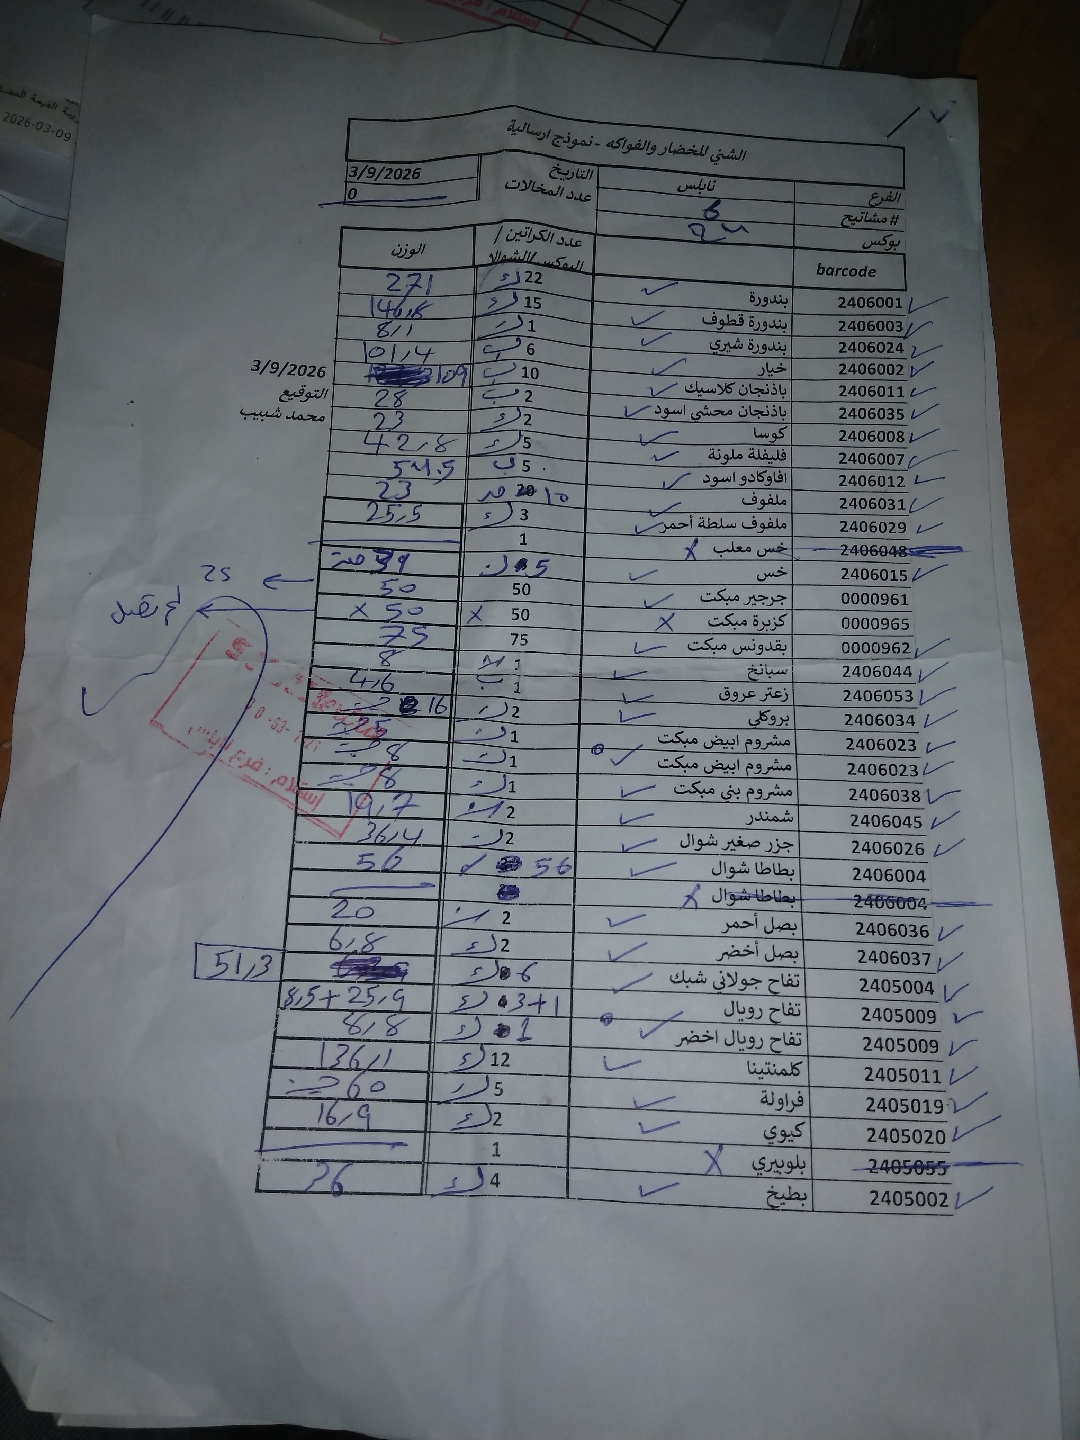 2026-03-09
الشني للخضار والفواكه - نموذج ارسالية
الفرع نابلس التاريخ 3/9/2026
#مشاتيح 6 عدد المخالات 0
بوكس
barcode عدد الكراتين / البوكس/الشوال الوزن
2406001 بندورة 22 271
2406003 بندورة قطوف 15
2406024 بندورة شيري 1 8,1
2406002 خيار 6 101,4
2406011 باذنجان كلاسيك 10 109
2406035 باذنجان محشي اسود 2 28
2406008 كوسا 2 23
2406007 فليفلة ملونة 5 42,8
2406012 افاوكادو اسود 5
2406031 ملفوف 10 23
2406029 ملفوف سلطة أحمر 3 25,5
2406048 خس معلب 1
2406015 خس 5
0000961 جرجير مبكت 50 50
0000965 كزبرة مبكت 50 x 50 x
0000962 بقدونس مبكت 75 75
2406044 سبانخ 1 8
2406053 زعتر عروق 1 4,6
2406034 بروكلي 2 16
2406023 مشروم ابيض مبكت 1
2406023 مشروم ابيض مبكت 1 8
2406038 مشروم بني مبكت 1 8
2406045 شمندر 2 19,7
2406026 جزر صغير شوال 2 36,4
2406004 بطاطا شوال 56 56
2406004 بطاطا شوال
2406036 بصل أحمر 2 20
2406037 بصل أخضر 2 6,8
2405004 تفاح جولاني شبك 6 51,3
2405009 تفاح رويال 3+1 8,5+25,9
2405009 تفاح رويال اخضر 1 8,8
2405011 كلمنتينا 12 136,1
2405019 فراولة 5 60
2405020 كيوي 2 16,9
2405055 بلوبيري 1
2405002 بطيخ 4
3/9/2026
التوقيع
محمد شبيب
25
استلام : فرع نابلس